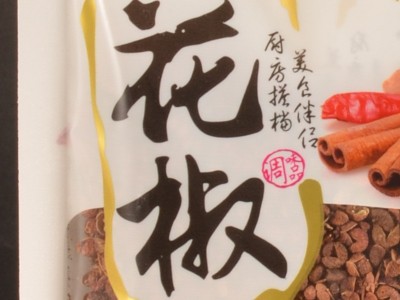 花椒
美食伴侣
厨房搭档